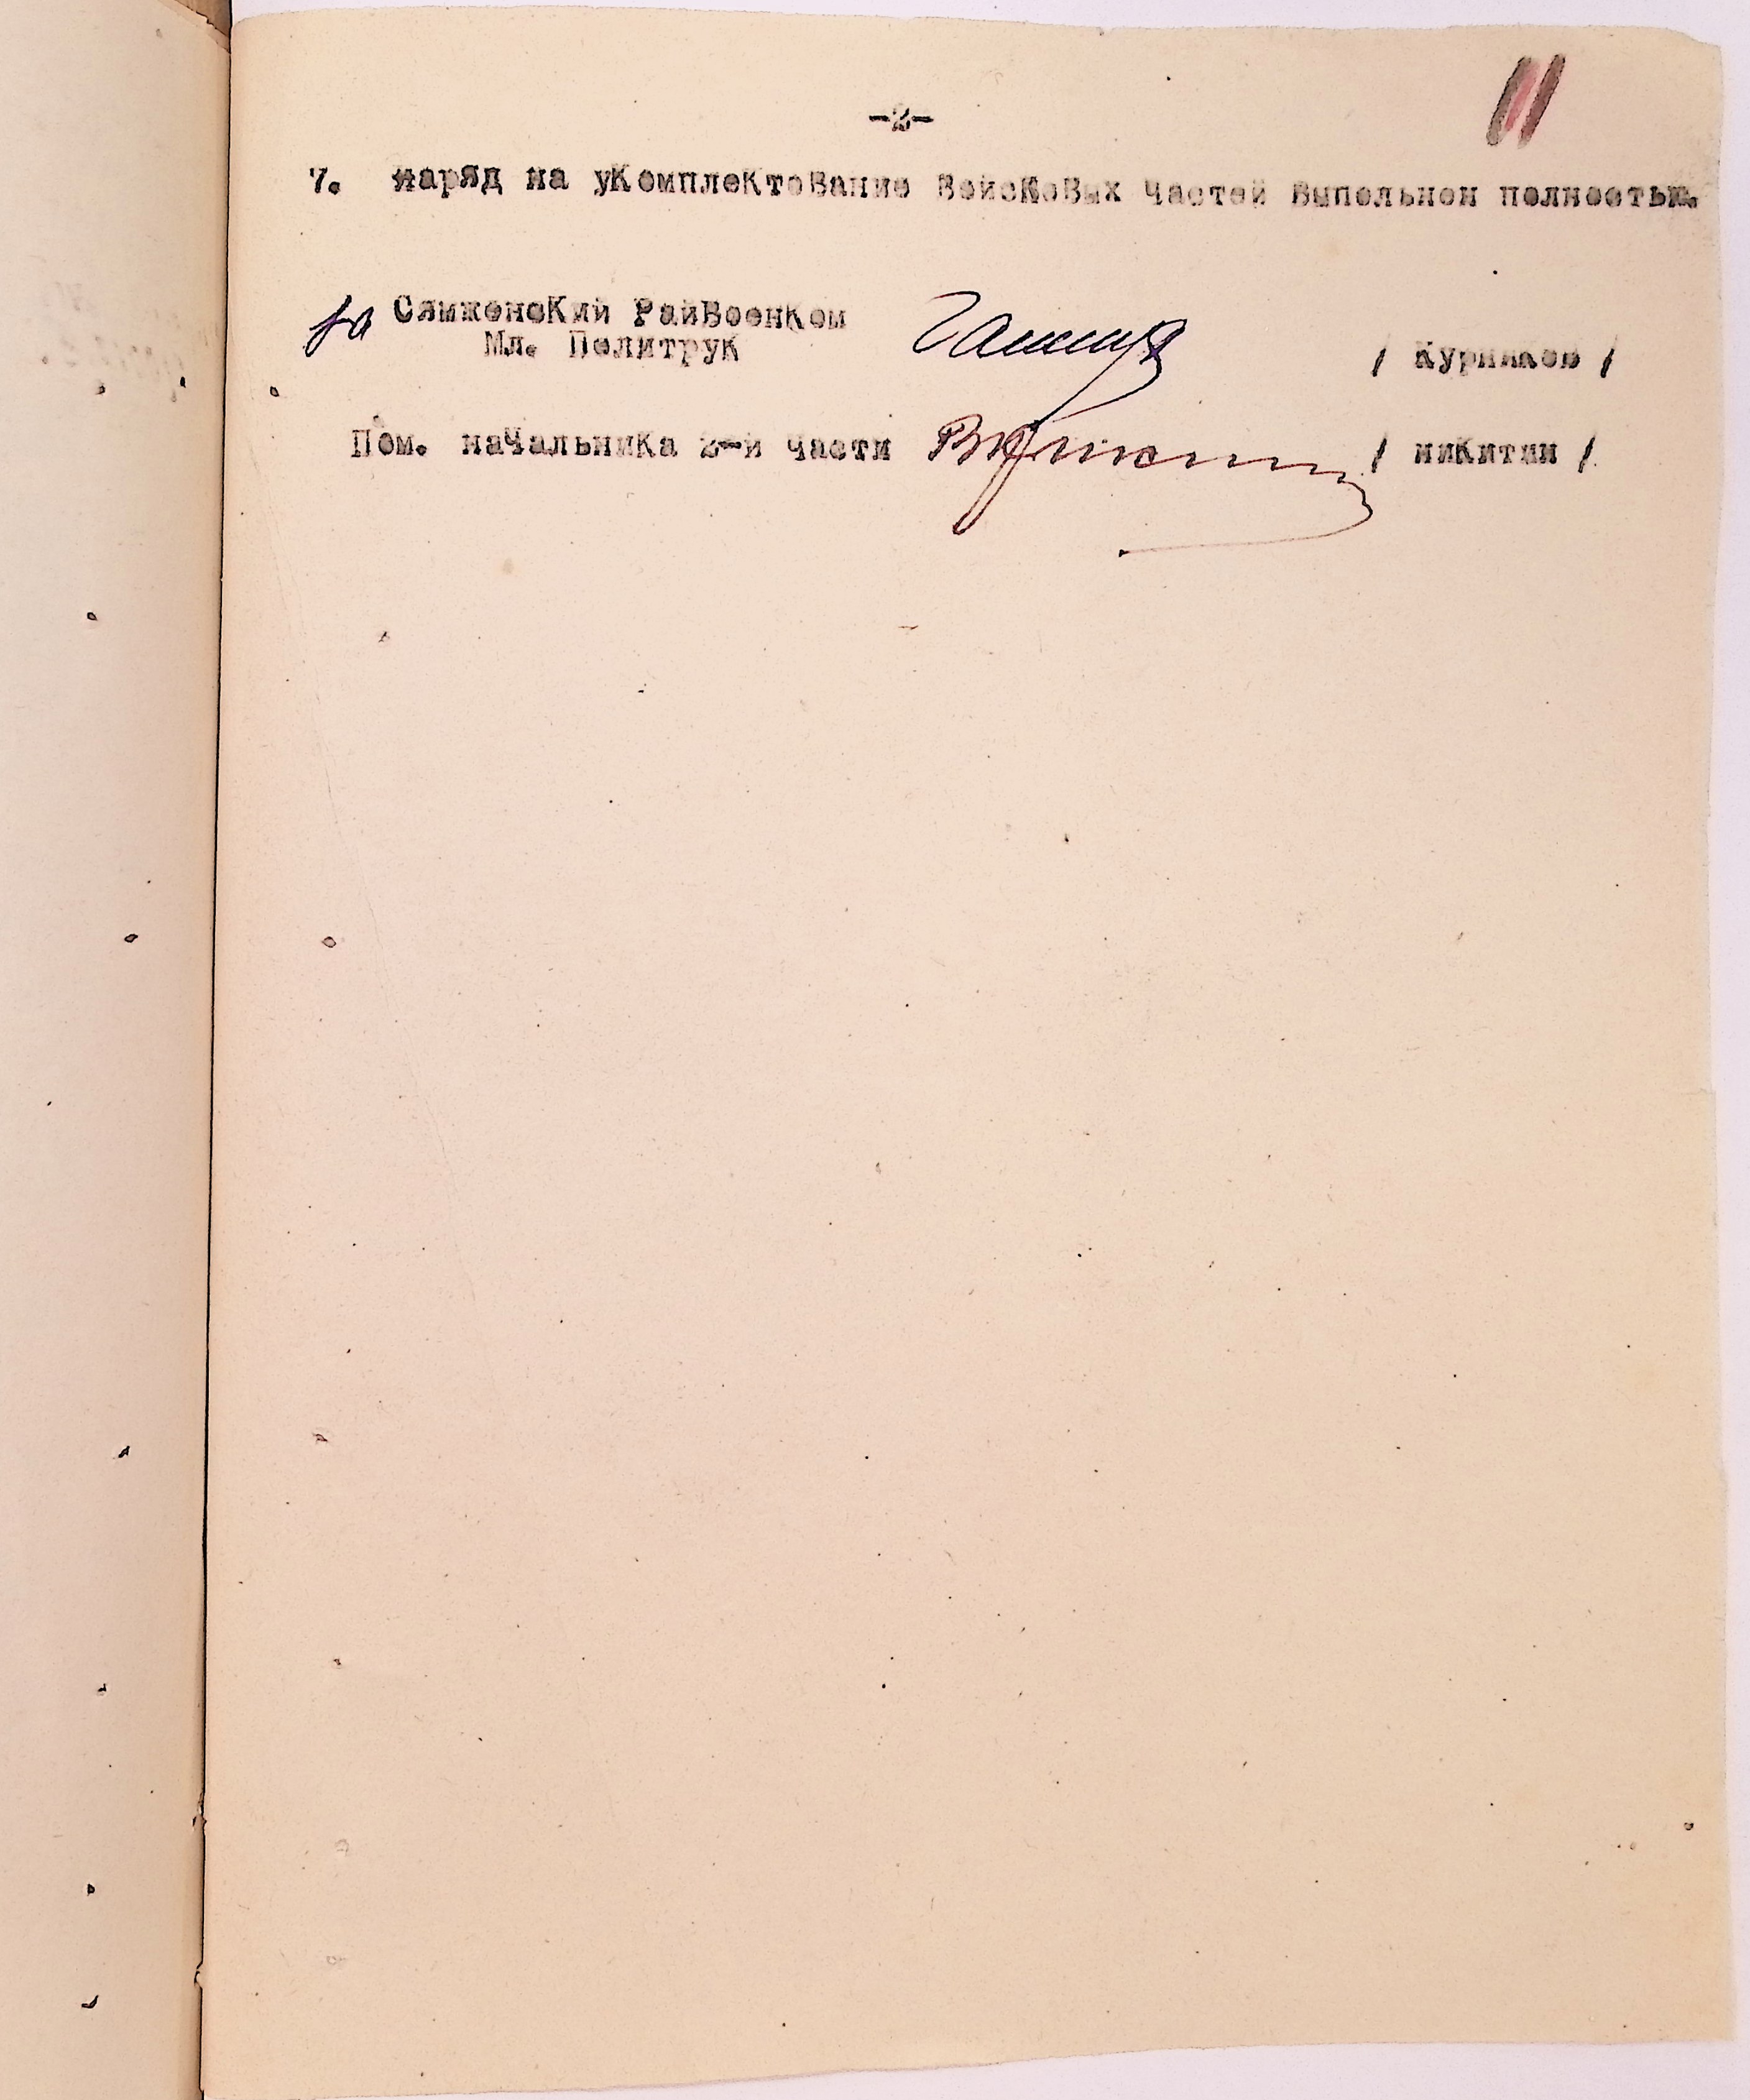 11
-2-
7. наряд на укомплектование войсковых частей выпольнон полностью.
Сямженский Райвоенком
Мл. Политрук / Курников /
Пом. начальника 2-й части / никитин /